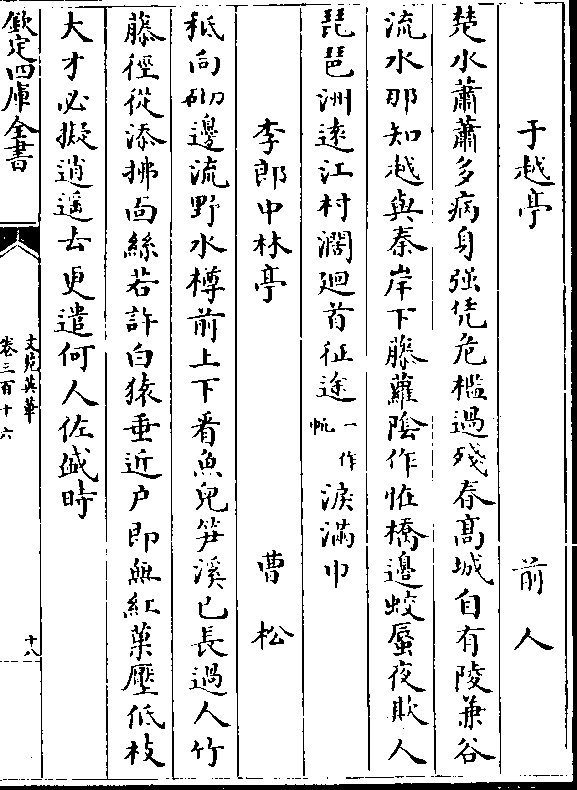 于越亭　前人
楚水蕭蕭多病身強凭危檻過殘春髙城自有陵兼谷
流水那知越與秦岸下藤蘿陰作怪橋邊蛟蜃夜欺人
琵琶洲逺江村濶廻首征途一作帆淚滿巾
李郎中林亭　曹松
秪向砌邊流野水樽前上下看魚兒笋溪已長過人竹
藤徑從添拂面絲若許白猿垂近户即無紅菓壓低枝
大才必擬逍遥去更遣何人佐盛時
欽定四庫全書
文苑英華
卷三百十六
十八